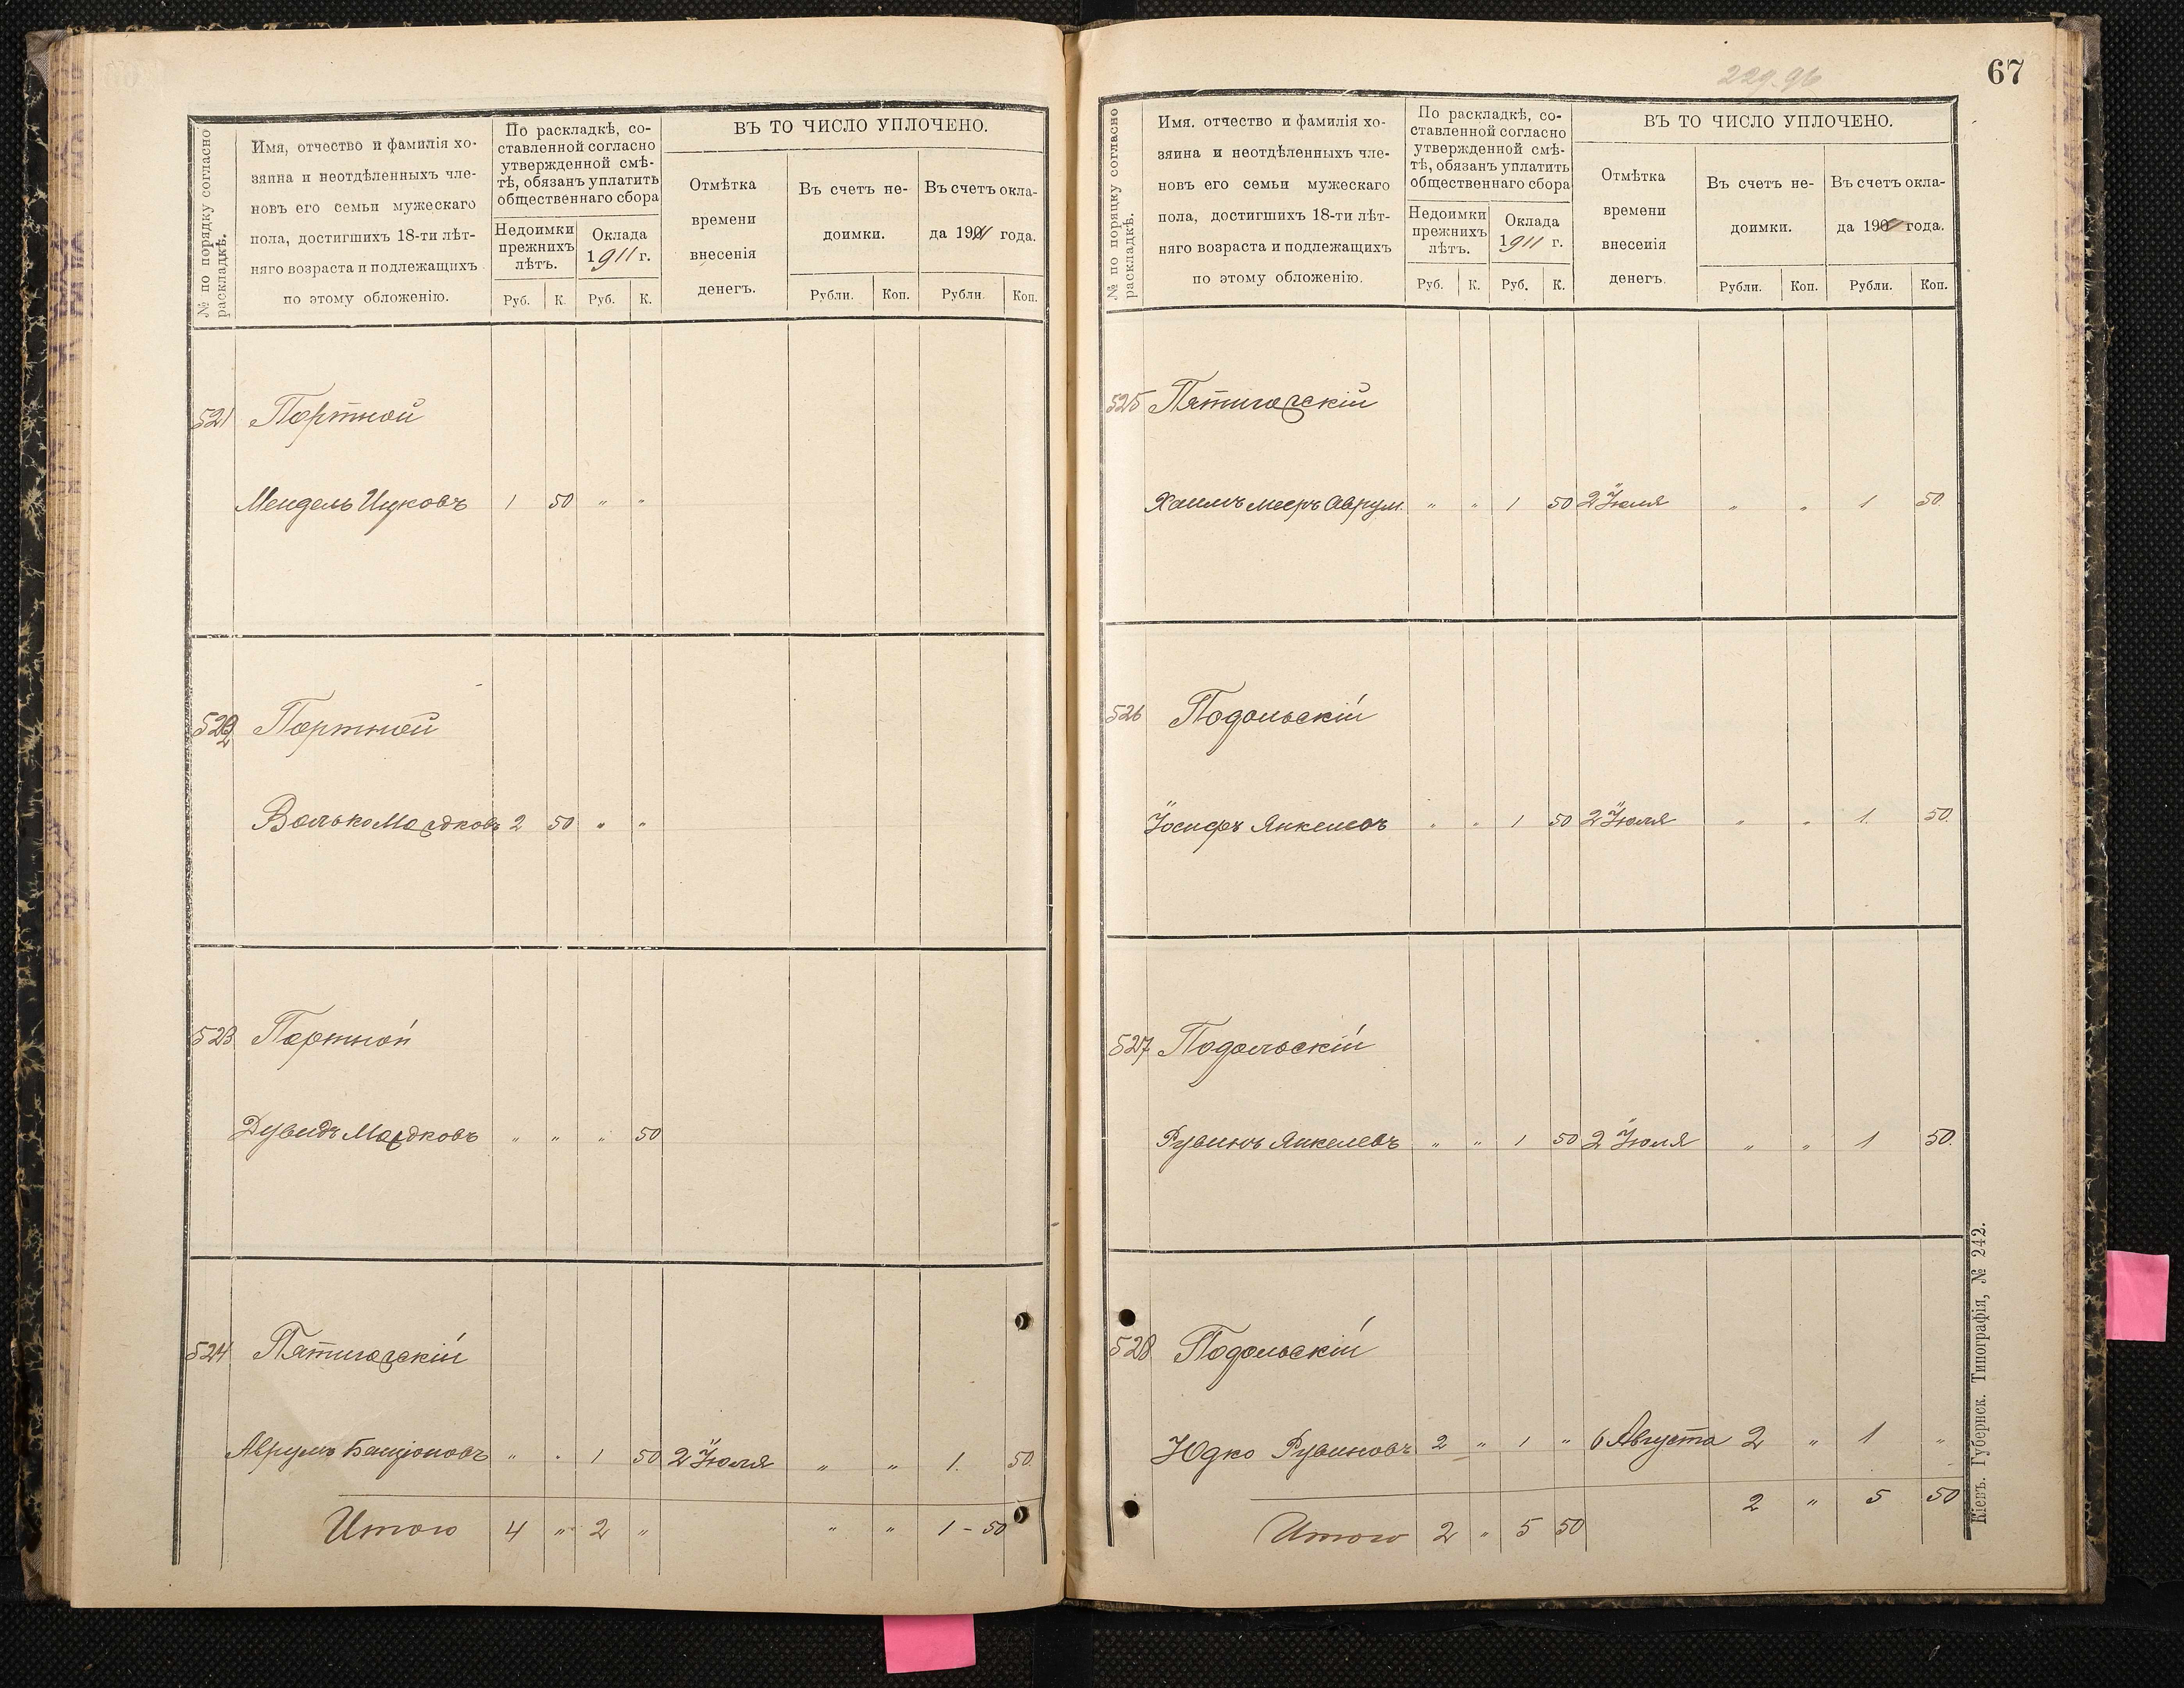 67
229.96
№ по порядку согласно раскладкѣ.
Имя, отчество и фамилія хо-
зяина и неотдѣленныхъ чле-
новъ его семьи мужескаго
пола, достигшихъ 18-ти лѣт-
няго возраста и подлежащихъ
по этому обложенію.
По раскладкѣ, со-
ставленной согласно
утвержденной смѣ-
тѣ, обязанъ уплатить
общественнаго сбора
Недоимки
прежнихъ
лѣтъ.
Оклада
1911 г.
Руб. К. Руб. К.
ВЪ ТО ЧИСЛО УПЛОЧЕНО.
Отмѣтка
времени
внесенія
денегъ.
Въ счетъ не-
доимки.
Въ счетъ окла-
да 1911 года.
Рубли. Коп. Рубли. Коп.
521 Портной
Мендель Ицковъ 1 50 " "
522 Портной
Волько Мордковъ 2 50 " "
523 Портной
Дувидъ Мордковъ " " " 50
524 Пятигорскій
Аврумъ Бенціоновъ " " 1 50 2 Іюля " " 1. 50.
Итого 4 " 2 " " " 1 - 50
№ по порядку согласно раскладкѣ.
Имя. отчество и фамилія хо-
зяина и неотдѣленныхъ чле-
новъ его семьи мужескаго
пола, достигшихъ 18-ти лѣт-
няго возраста и подлежащихъ
по этому обложенію.
По раскладкѣ, со-
ставленной согласно
утвержденной смѣ-
тѣ, обязанъ уплатить
общественнаго сбора
Недоимки
прежнихъ
лѣтъ.
Оклада
1911 г.
Руб. К. Руб. К.
ВЪ ТО ЧИСЛО УПЛОЧЕНО.
Отмѣтка
времени
внесенія
денегъ.
Въ счетъ не-
доимки.
Въ счетъ окла-
да 1911 года.
Рубли. Коп. Рубли. Коп.
525 Пятигорскій
Хаимъ Мееръ Аврум. " " 1 50 2 Іюля " " 1 50.
526 Подольскій
Іосифъ Янкелевъ " " 1 50 2 Іюля " " 1. 50.
527 Подольскій
Рувинъ Янкелевъ " " 1 50 2 Іюля " " 1 50.
528 Подольскій
Юдко Рувиновъ 2 " 1 " 6 Августа 2 " 1 "
2 " 5 50
Итого 2 " 5 50
Кіевъ. Губернск. Типографія, № 242.